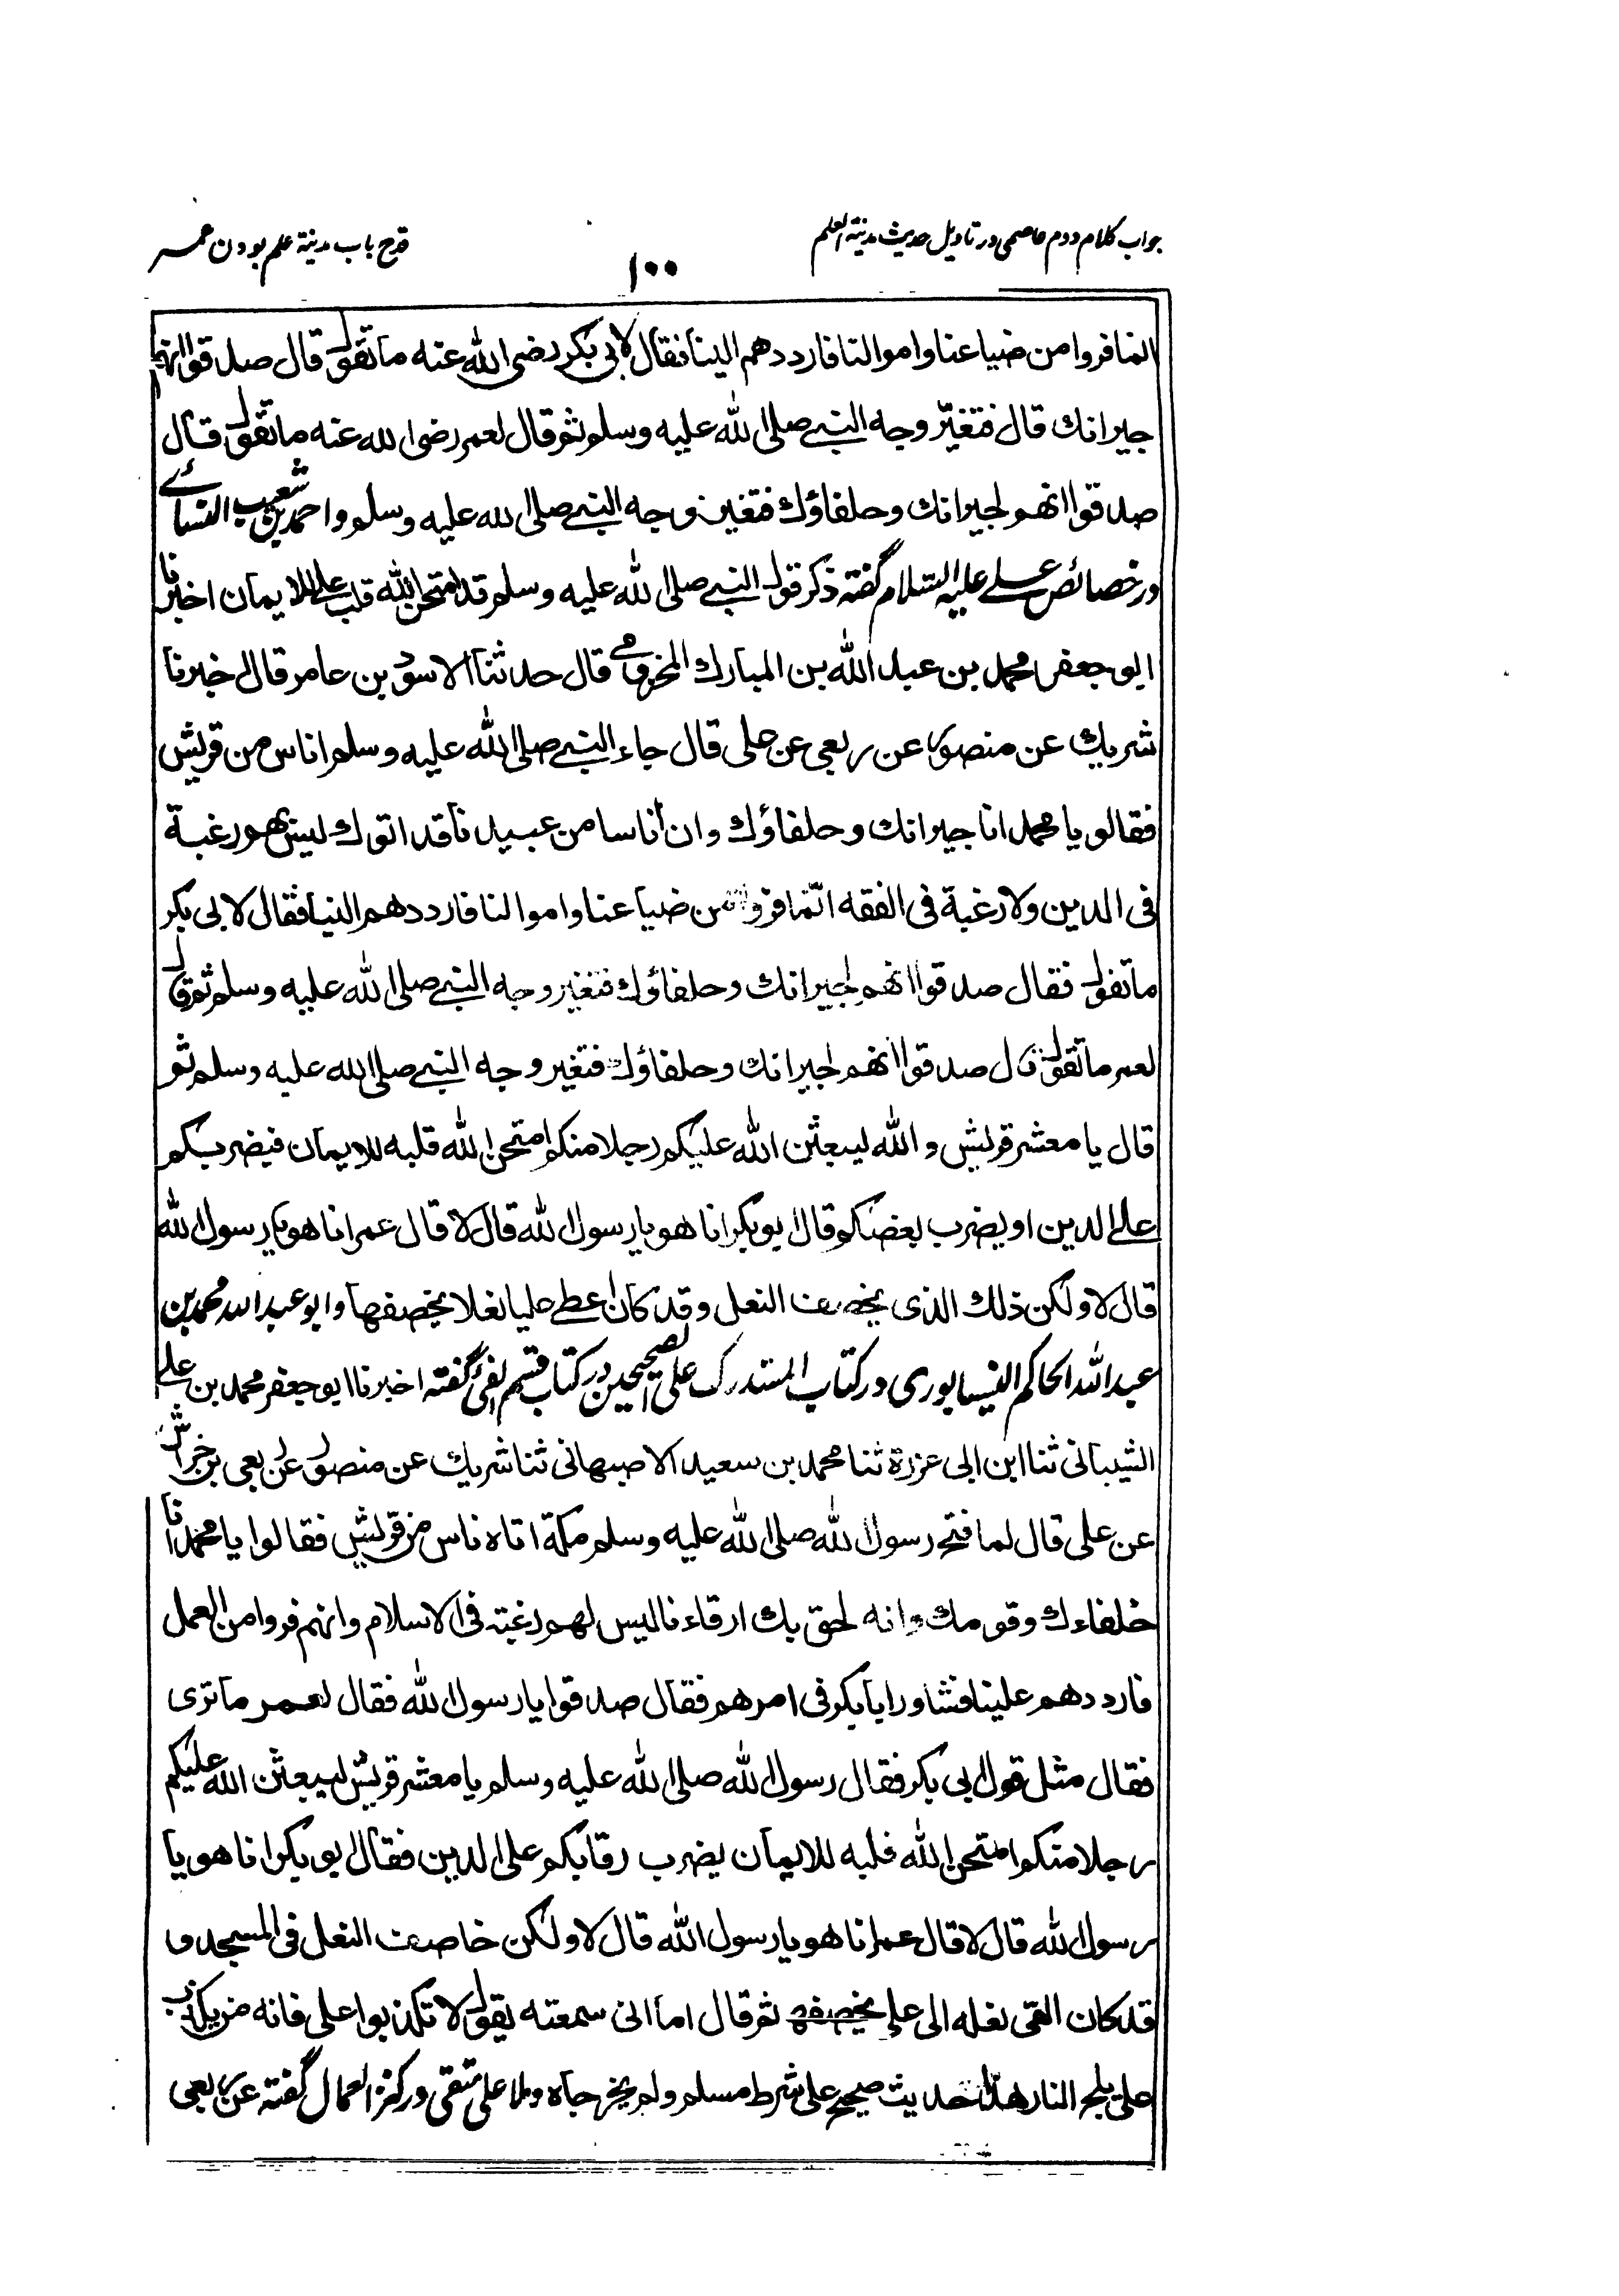 جواب کلام دوم عاصمی در تاویل حدیث مدینة العلم
۱۰۰
قدح باب مدینة علم بودن عمر
انما فروا من ضياعنا واموالنا فارددهم الينا فقال لابى بكر رضى الله عنه ما تقول قال صدقوا انهم
جيرانك قال فتغيّر وجه النبي صلى الله عليه وسلم ثم قال لعمر رضى الله عنه ما تقول قال
صدقوا انهم لجيرانك وحلفاؤك فتغير وجه النبي صلى الله عليه وسلم و احمد بن شعيب النسائے
در خصائص علے عليه السلام گفته ذكر قول النبي صلى الله عليه وسلم قد امتحن الله قلب علے للايمان اخبرنا
ابو جعفر محمد بن عبد الله بن المبارك المخرمي قال حدثنا الاسود بن عامر قال اخبرنا
شريك عن منصور عن ربعى عن على قال جاء النبي صلى الله عليه وسلم اناس من قريش
فقالو يا محمد انا جيرانك وحلفاؤك وان أناسا من عبيدنا قد اتوك ليس بهم رغبة
فى الدين ولا رغبة فى الفقه انّما فروا من ضياعنا واموالنا فارددهم الينا فقال لابى بكر
ما تقول فقال صدقوا انهم لجيرانك وحلفاؤك فتغير وجه النبي صلى الله عليه وسلم ثم قال
لعمر ما تقول قال صدقوا انهم لجيرانك وحلفاؤك فتغير وجه النبي صلى الله عليه وسلم ثم
قال يا معشر قريش والله ليبعثن الله عليكم رجلا منكم امتحن الله قلبه للايمان فيضربكم
على الدين او يضرب بعضكم قال ابو بكر انا هو يا رسول الله قال لا قال عمر انا هو يا رسول الله
قال لا ولكن ذلك الذى يخصف النعل وقد كان اعطے عليا نعلا يخصفها و ابو عبد الله محمد بن
عبد الله الحاكم النيسابورى در كتاب المستدرك على الصحيحين در كتاب قسم الفئ گفته اخبرنا ابو جعفر محمد بن علے
الشيبانى ثنا ابن ابى عزرة ثنا محمد بن سعيد الاصبهانى ثنا شريك عن منصور عن ربعى بن خراش
عن على قال لما فتح رسول الله صلى الله عليه وسلم مكة اتاه ناس من قريش فقالوا يا محمد انا
خلفاءك وقومك وانه لحق بك ارقاءنا ليس لهم رغبة فى الاسلام وانهم فروا من العمل
فارددهم علينا فشاور ابا بكر فى امرهم فقال صدقوا يا رسول الله فقال لعمر ما ترى
فقال مثل قول ابى بكر فقال رسول الله صلى الله عليه وسلم يا معشر قريش ليبعثن الله عليكم
رجلا منكم امتحن الله قلبه للايمان يضرب رقابكم على الدين فقال ابو بكر انا هو يا
رسول الله قال لا قال عمر انا هو يا رسول الله قال لا ولكن خاصف النعل فى المسجد و
قد كان القى نعله الى على يخصفها ثم قال اما انى سمعته يقول لا تكذبوا على فانه من يكذب
على يلج النار هذا حديث صحيح على شرط مسلم ولم يخرجاه و ملا على متقى در كنز العمال گفته عن ربعى